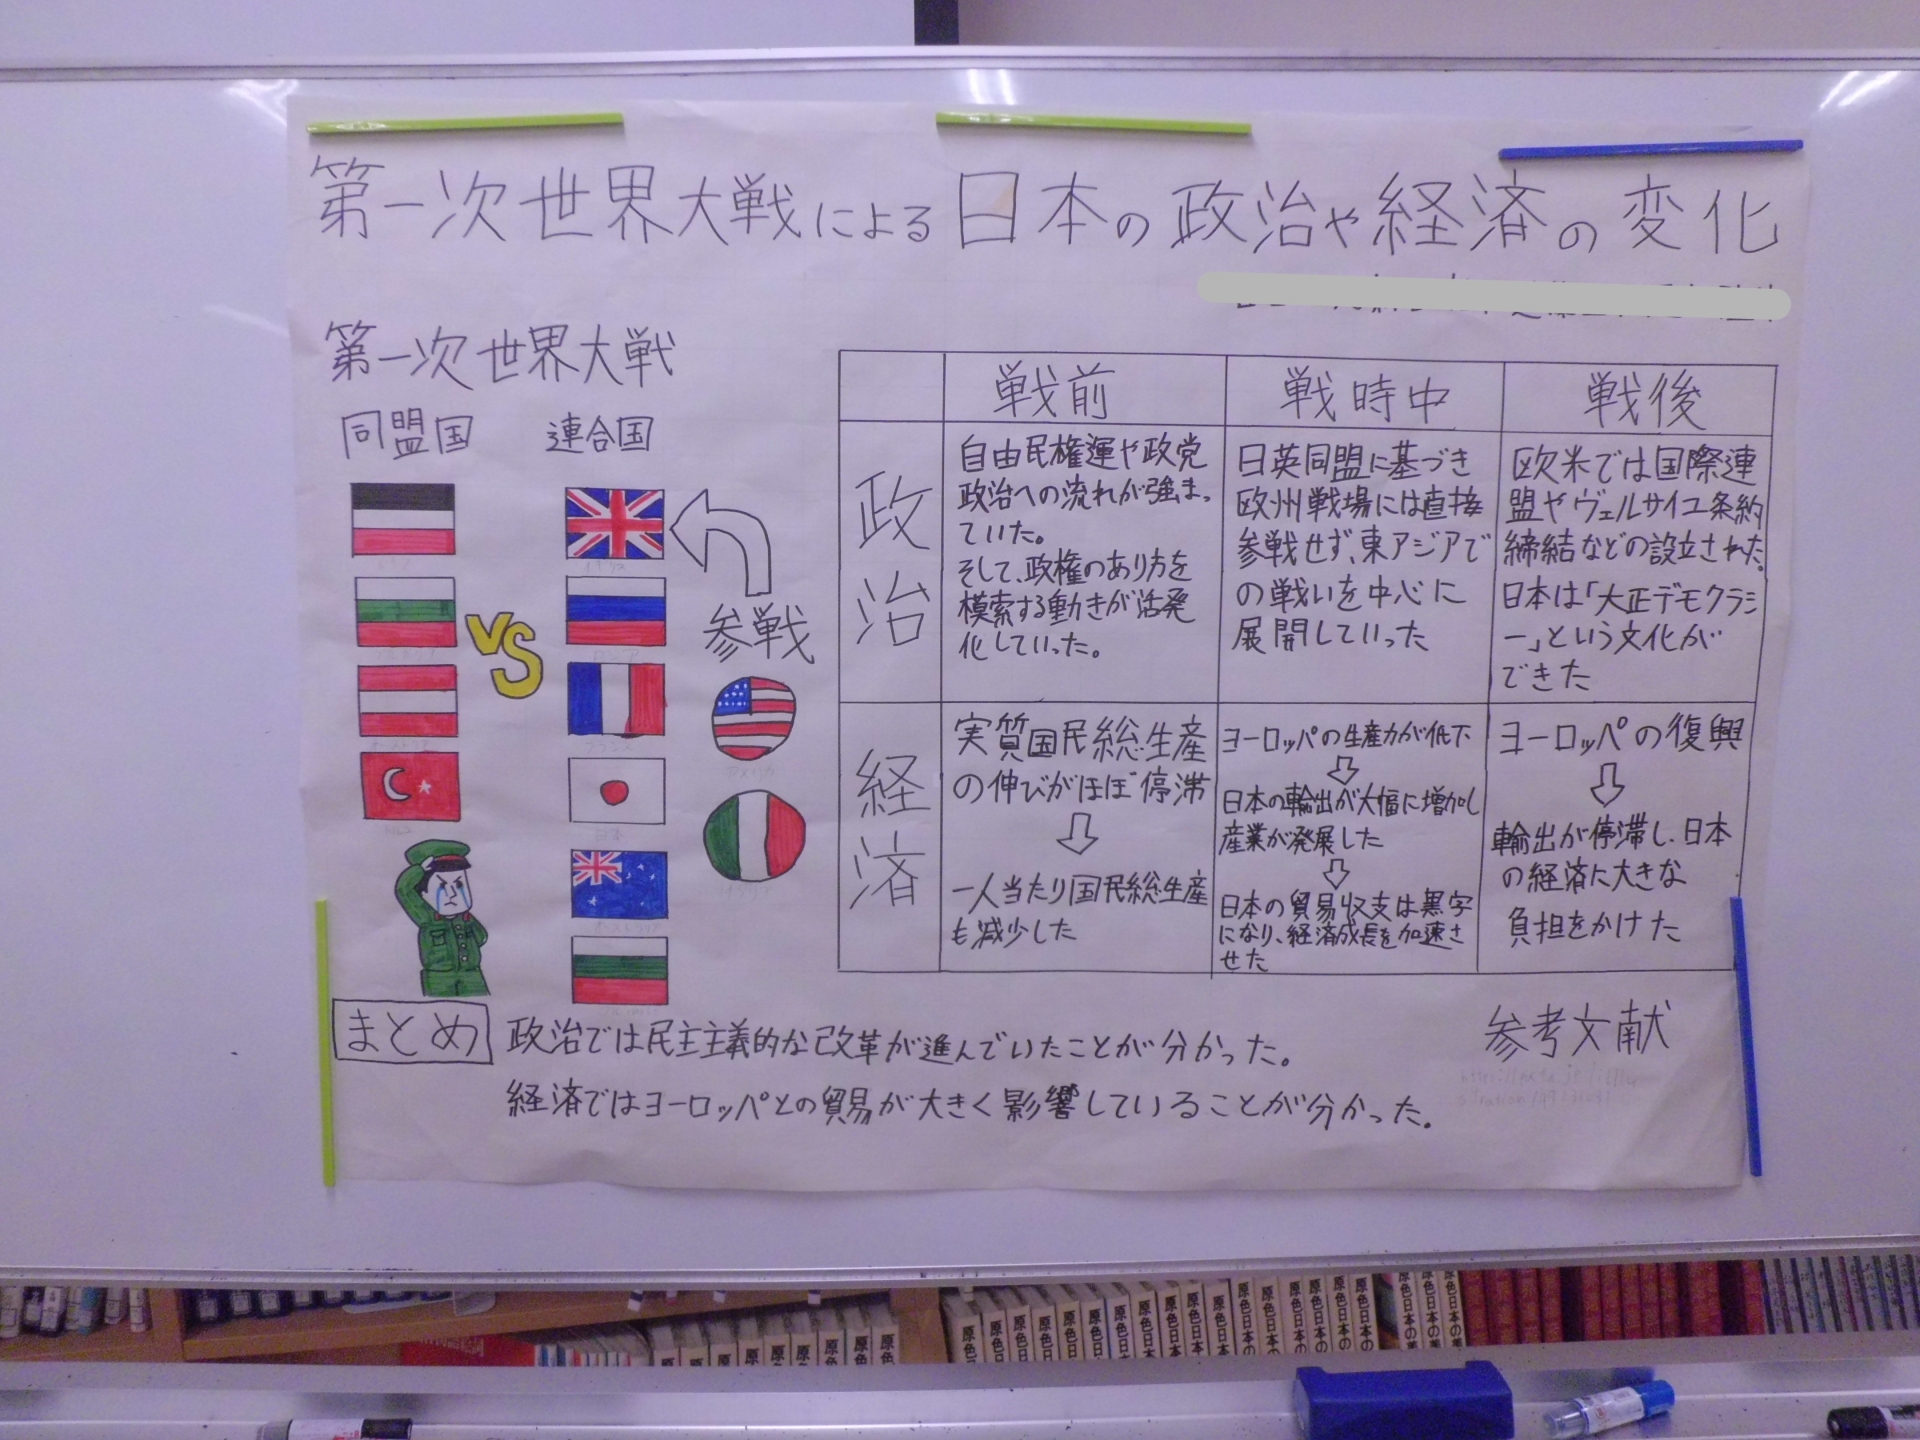 第一次世界大戦による日本の政治や経済の変化
第一次世界大戦
同盟国
連合国
VS
イギリス
ロシア
フランス
日本
オーストラリア
参戦
アメリカ
イタリア
戦前
戦時中
戦後
政治
自由民権運や政党
政治への流れが強まっ
ていた。
そして、政権のあり方を
模索する動きが活発
化していった。
日英同盟に基づき
欧州戦場には直接
参戦せず、東アジアで
の戦いを中心に
展開していった
欧米では国際連
盟やヴェルサイユ条約
締結などの設立された。
日本は「大正デモクラシ
ー」という文化が
できた
経済
実質国民総生産
の伸びがほぼ停滞
一人当たり国民総生産
も減少した
ヨーロッパの生産力が低下
日本の輸出が大幅に増加し
産業が発展した
日本の貿易収支は黒字
になり、経済成長を加速さ
せた
ヨーロッパの復興
輸出が停滞し、日本
の経済に大きな
負担をかけた
まとめ
政治では民主主義的な改革が進んでいたことが分かった。
経済ではヨーロッパとの貿易が大きく影響していることが分かった。
参考文献
原色日本の